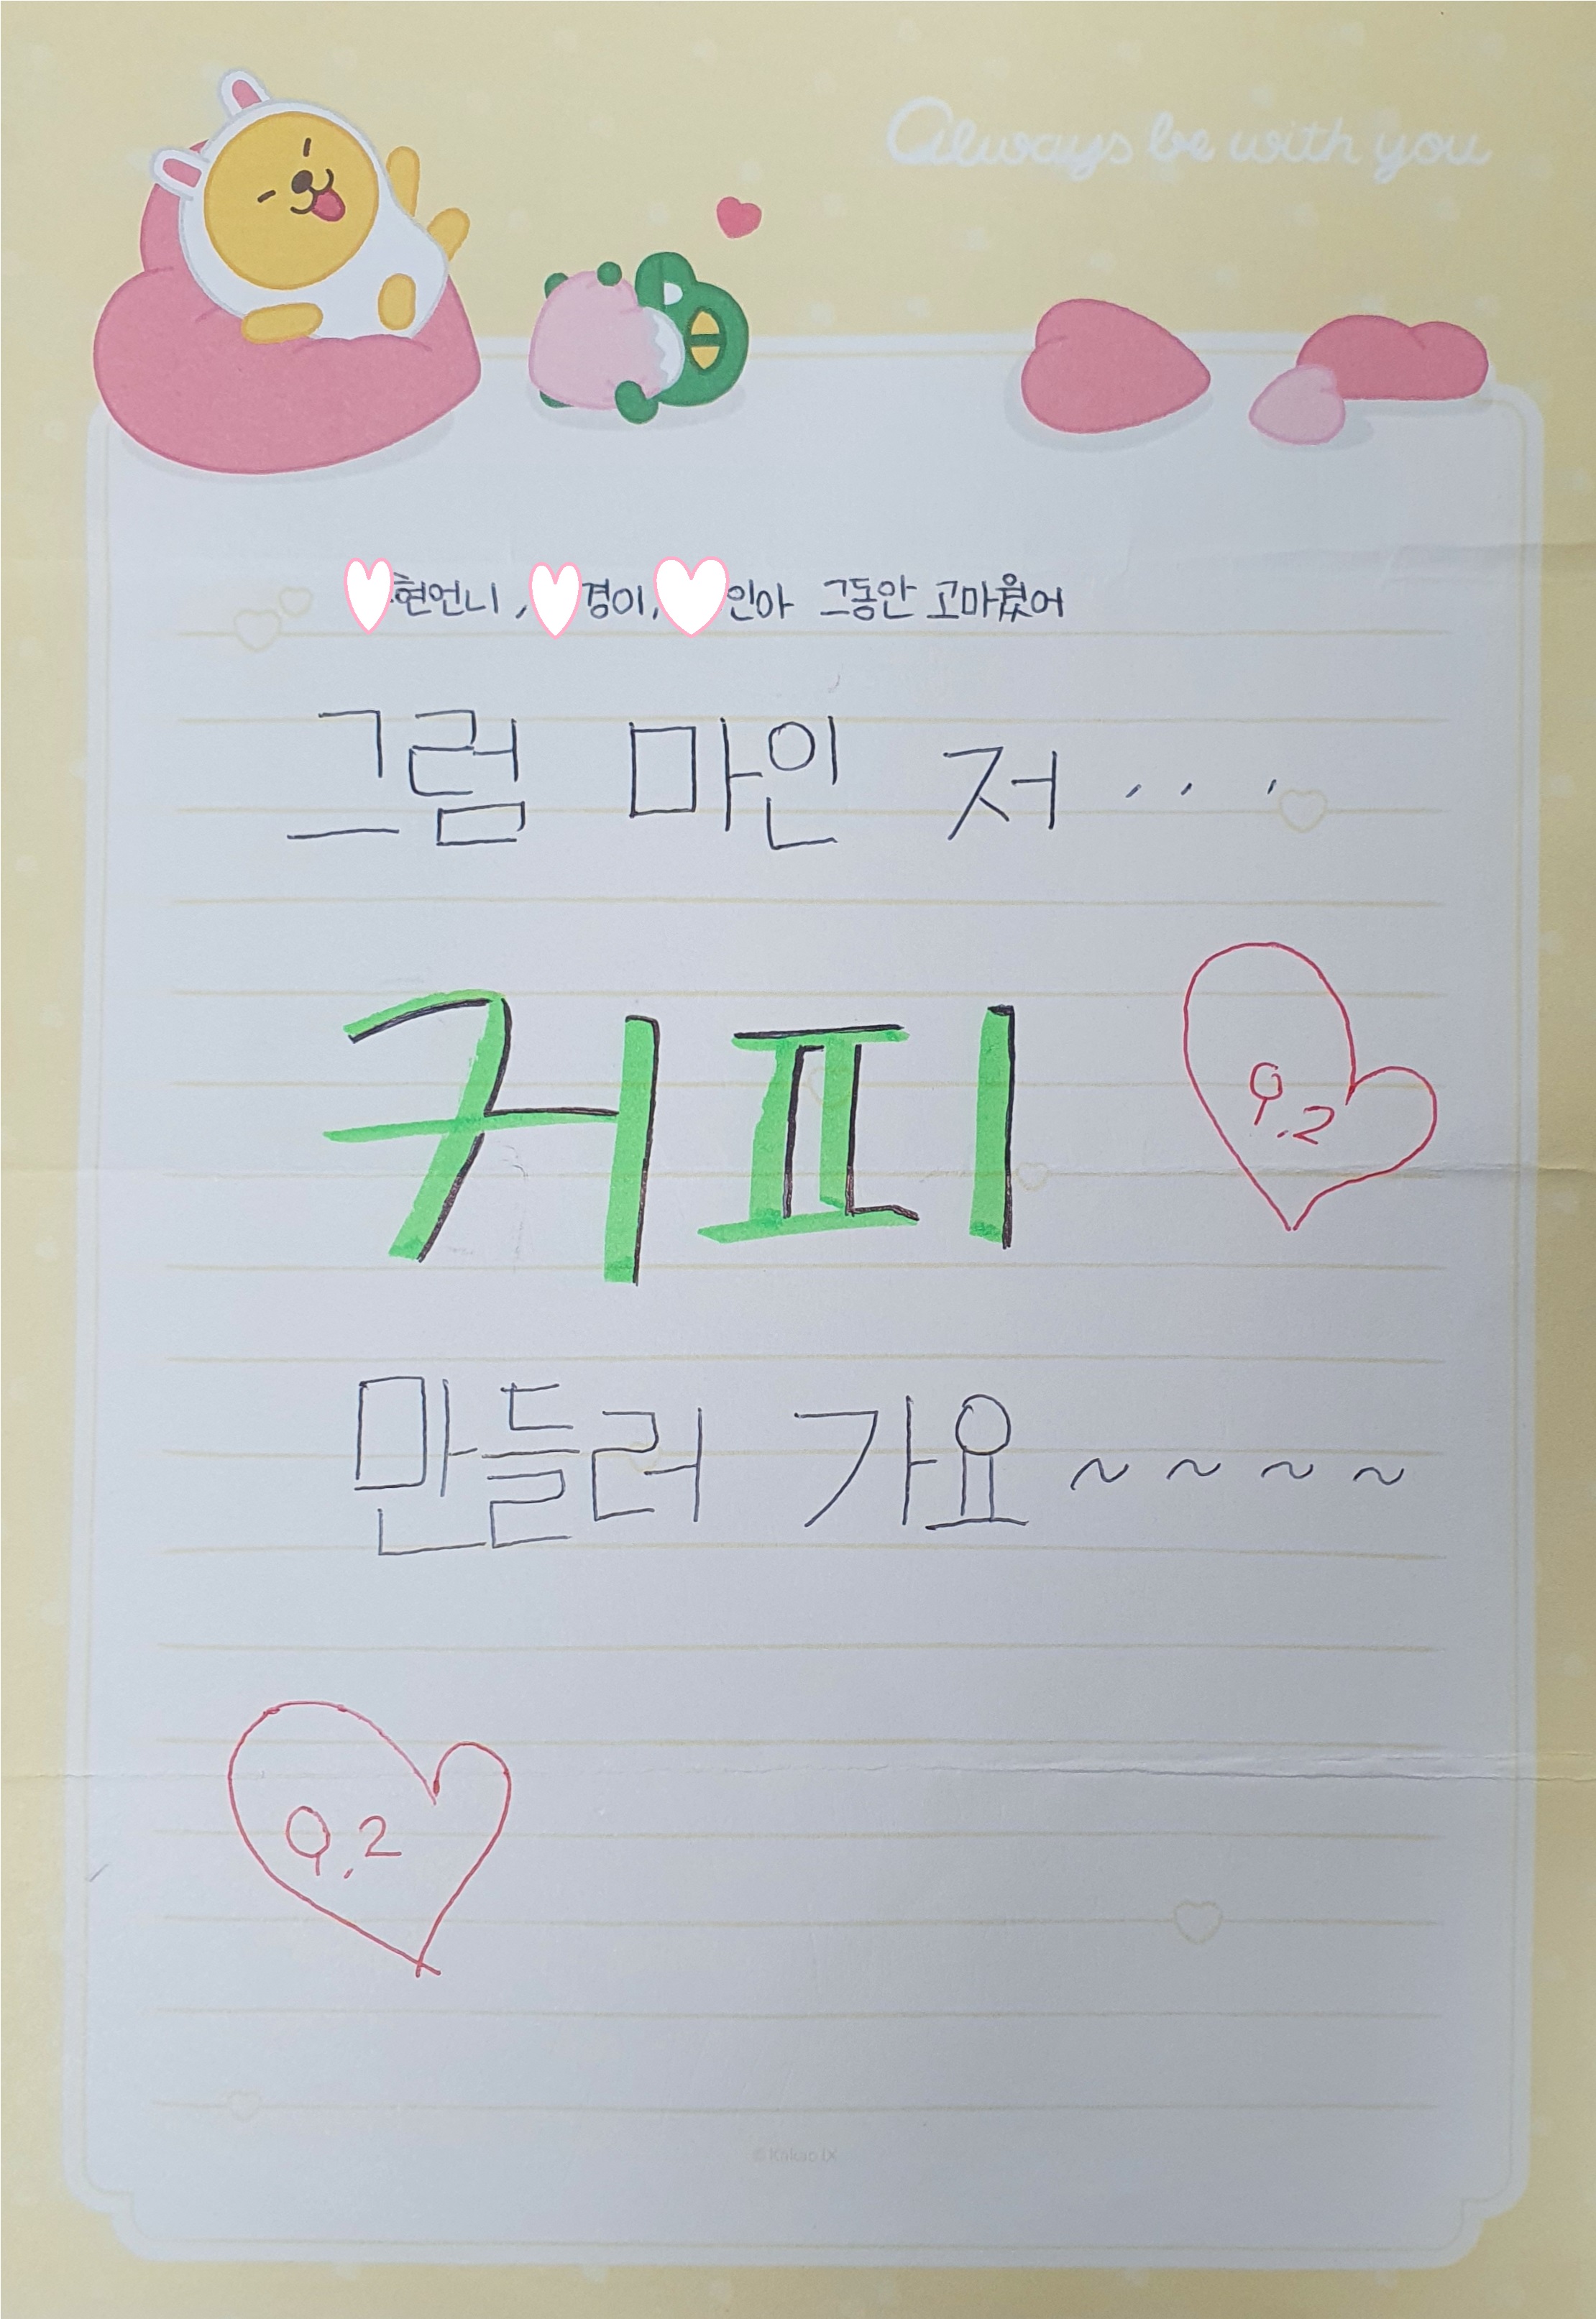 Always be with you
현언니, 경이, 인아 그동안 고마웠어
그럼 마인 저...
커피
9.2
만들러 가요~~~~
9.2
© Kakao IX